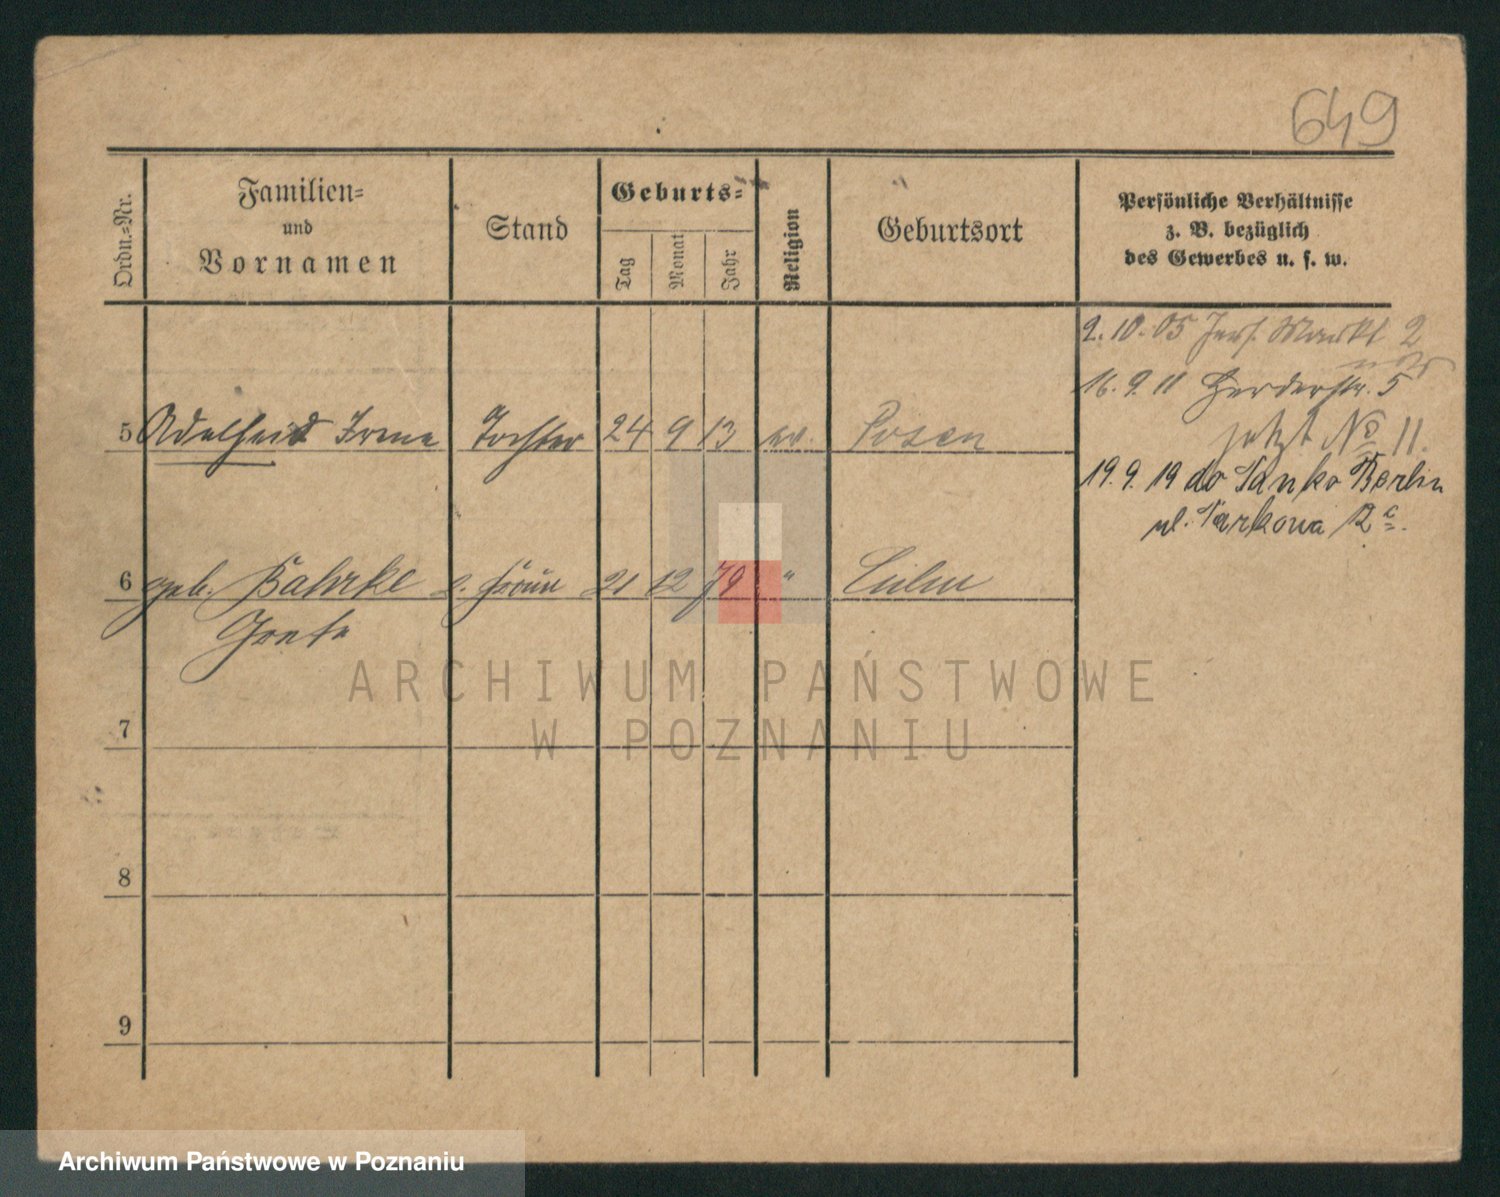 649
Ordn.=Nr.
Familien=
und
Vornamen
Stand
Geburts=
Tag
Monat
Jahr
Religion
Geburtsort
Persönliche Verhältnisse
z. B. bezüglich
des Gewerbes u. s. w.
2.10.05 Jers. Markt 2
16.9.11 Herderstr. 5
jetzt No 11.
19.9.19 do Berlin
ul. 12c.
5 Adelheid Irma Tochter 24 9 13 ev. Posen
6 geb. Bahrke 2. Frau 21 12 79 " Culm
Grete
7
8
9
ARCHIWUM PAŃSTWOWE
W POZNANIU
Archiwum Państwowe w Poznaniu